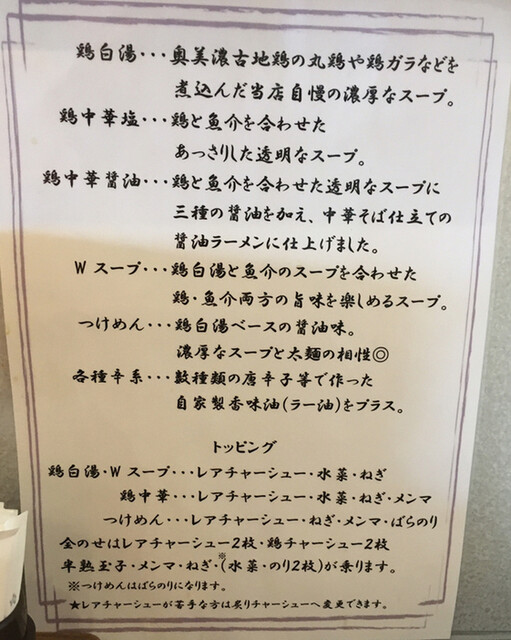 鶏白湯・・・奥美濃古地鶏の丸鶏や鶏ガラなどを
煮込んだ当店自慢の濃厚なスープ。
鶏中華塩・・・鶏と魚介を合わせた
あっさりした透明なスープ。
鶏中華醤油・・・鶏と魚介を合わせた透明なスープに
三種の醤油を加え、中華そば仕立ての
醤油ラーメンに仕上げました。
Wスープ・・・鶏白湯と魚介のスープを合わせた
鶏・魚介両方の旨味を楽しめるスープ。
つけめん・・・鶏白湯ベースの醤油味。
濃厚なスープと太麺の相性◎
各種辛系・・・数種類の唐辛子等で作った
自家製香味油(ラー油)をプラス。
トッピング
鶏白湯・Wスープ・・・レアチャーシュー・水菜・ねぎ
鶏中華・・・レアチャーシュー・水菜・ねぎ・メンマ
つけめん・・・レアチャーシュー・ねぎ・メンマ・ばらのり
全のせはレアチャーシュー2枚・鶏チャーシュー2枚
半熟玉子・メンマ・ねぎ・※(水菜・のり2枚)が乗ります。
※つけめんはばらのりになります。
★レアチャーシューが苦手な方は炙りチャーシューへ変更できます。